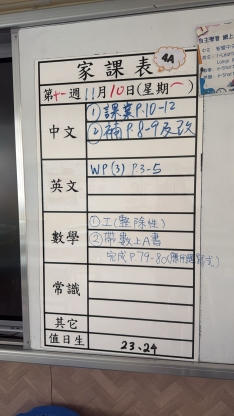 家課表 4A
第十一週 11月10日(星期一)
中文
①課業P.10-12
②補P.8-9及改
英文
WP(3) P.3-5
數學
①工(整除性)
②帶數上A書
完成P.79-80
常識
其它
值日生
23、24